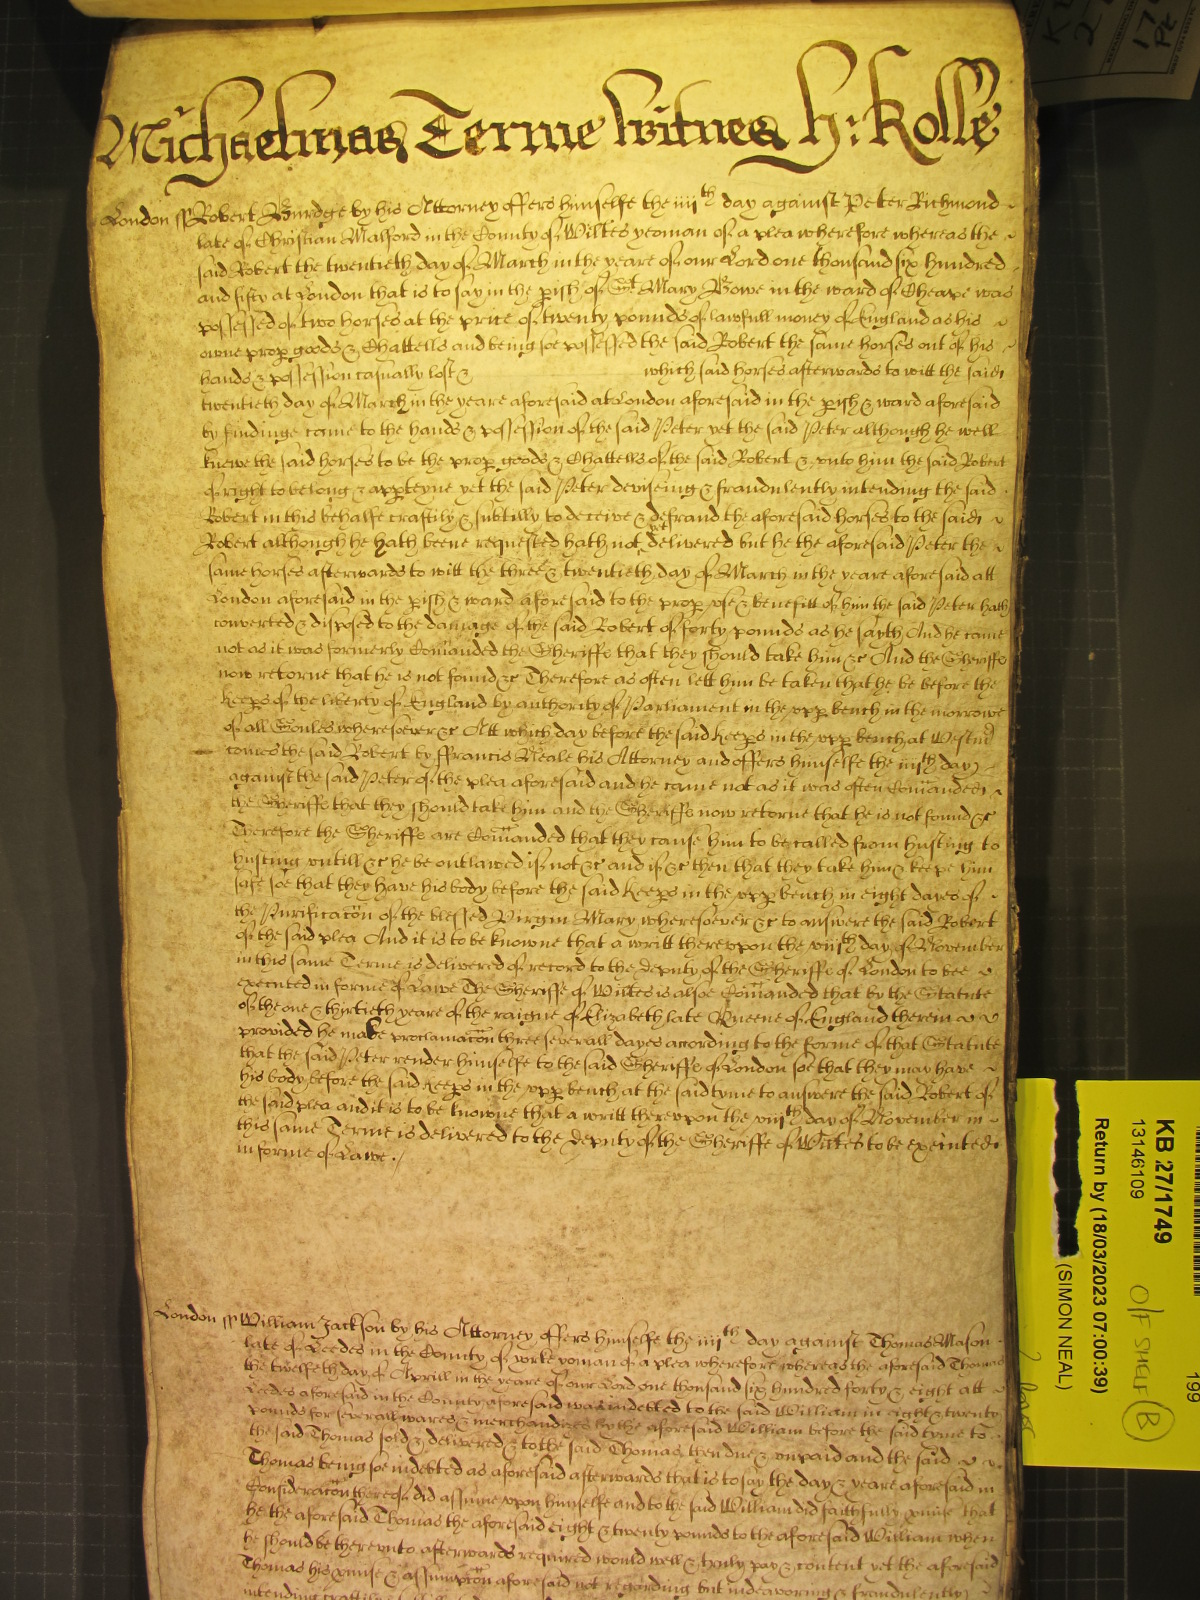 Michaelmas Terme Witnes H: Rolle
London ss Robert Burdge by his Attorney offers himselfe the iiijth day against Peter Richmond
late of Christian Malford in the County of Wiltes yeoman of a plea wherefore whereas the
said Robert the twentieth day of March in the yeare of our Lord one thousand six hundred
and fifty at London that is to say in the pish of St Mary Bowe in the ward of Cheape was
possessed of two horses at the price of twenty pounds of lawfull money of England as his
owne prop goods & Chattells and being soe possessed the said Robert the same horses out of his
hands & possession casually lost & which said horses afterwards to witt the said
twentieth day of March in the yeare aforesaid at London aforesaid in the pish & ward aforesaid
by findinge came to the hands & possession of the said Peter yet the said Peter although he well
knewe the said horses to be the prop goods & Chattells of the said Robert & unto him the said Robert
of right to belong & appteyne yet the said Peter deviseing & fraudulently intending the said
Robert in this behalfe craftily & subtilly to deceive & defraud the aforesaid horses to the said
Robert although he hath beene requested hath not yet delivered but he the aforesaid Peter the
same horses afterwards to witt the three & twentieth day of March in the yeare aforesaid att
London aforesaid in the pish & ward aforesaid to the prop use & benefitt of him the said Peter hath
converted & disposed to the damage of the said Robert of forty pounds as he sayth And he came
not as it was formerly Comanded the Sheriffs that they should take him &c And the Sheriffs
now retorne that he is not found &c Therefore as often lett him be taken that he be before the
Keeps of the liberty of England by authority of Parliament in the upp bench in the morrowe
of all Soules wheresoever &c Att which day before the said Keeps in the upp bench at Westm
comes the said Robert by Francis Neale his Attorney and offers himselfe the iiijth day
against the said Peter of the plea aforesaid and he came not as it was often Comanded
the Sheriffs that they should take him and the Sheriffs now retorne that he is not found &c
Therefore the Sheriffs are Comanded that they cause him to be called from husting to
husting untill &c he be outlawed if not &c and if &c then that they take him & keepe him
safe soe that they have his body before the said Keeps in the upp bench in eight dayes of
the Purificacon of the blessed Virgin Mary wheresoever &c to answere the said Robert
of the said plea And it is to be knowne that a writt thereupon the viijth day of November
in this same Terme is delivered of record to the deputy of the Sheriffs of London to bee
executed in forme of Lawe The Sheriffe of Wiltes is alsoe Comanded that by the Statute
of the one & thirtieth yeare of the raigne of Elizabeth late Queene of England therein
provided he make proclamacon three severall dayes according to the forme of that Statute
that the said Peter render himselfe to the said Sheriffs of London soe that they may have
his body before the said Keeps in the upp bench at the said tyme to answere the said Robert of
the said plea and it is to be knowne that a writt thereupon the viijth day of November in
this same Terme is delivered to the deputy of the Sheriffe of Wiltes to be executed
in forme of Lawe
London ss William Jackson by his Attorney offers himselfe the iiijth day against Thomas Mason
late of Leedes in the County of yorke yoman of a plea wherefore whereas the aforesaid Thomas
the twelfth day of Aprill in the yeare of our Lord one thousand six hundred forty & eight att
Leedes aforesaid in the County aforesaid was indebted to the said William in eight & twenty
pounds for severall wares & merchandizes by the aforesaid William before the said tyme to
the said Thomas sold & delivered & to the said Thomas then due & unpaid and the said
Thomas being soe indebted as aforesaid afterwards that is to say the day & yeare aforesaid in
Consideracon thereof did assume upon himselfe and to the said William did faithfully pmise that
he the aforesaid Thomas the aforesaid eight & twenty pounds to the aforesaid William when
he should be thereunto afterwards required would well & truly pay & content yet the aforesaid
Thomas his pmise & assumpcon aforesaid not regarding but indeavoring & fraudulently
intending craftily
KB 27/1749
13146109
Return by (18/03/2023 07:00:39)
(SIMON NEAL)
O/F SHELF B
199